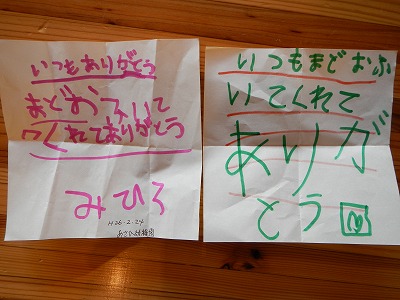 いつもありがとう
まどおふいて
くれてありがとう
みひろ
H26.2.24
いつもまどおふ
いてくれて
ありが
とう